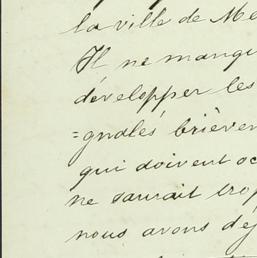 la ville de Me
Il ne manqu
développer les
=gnalés brièvem
qui doivent oc
ne saurait trop
nous avons déj